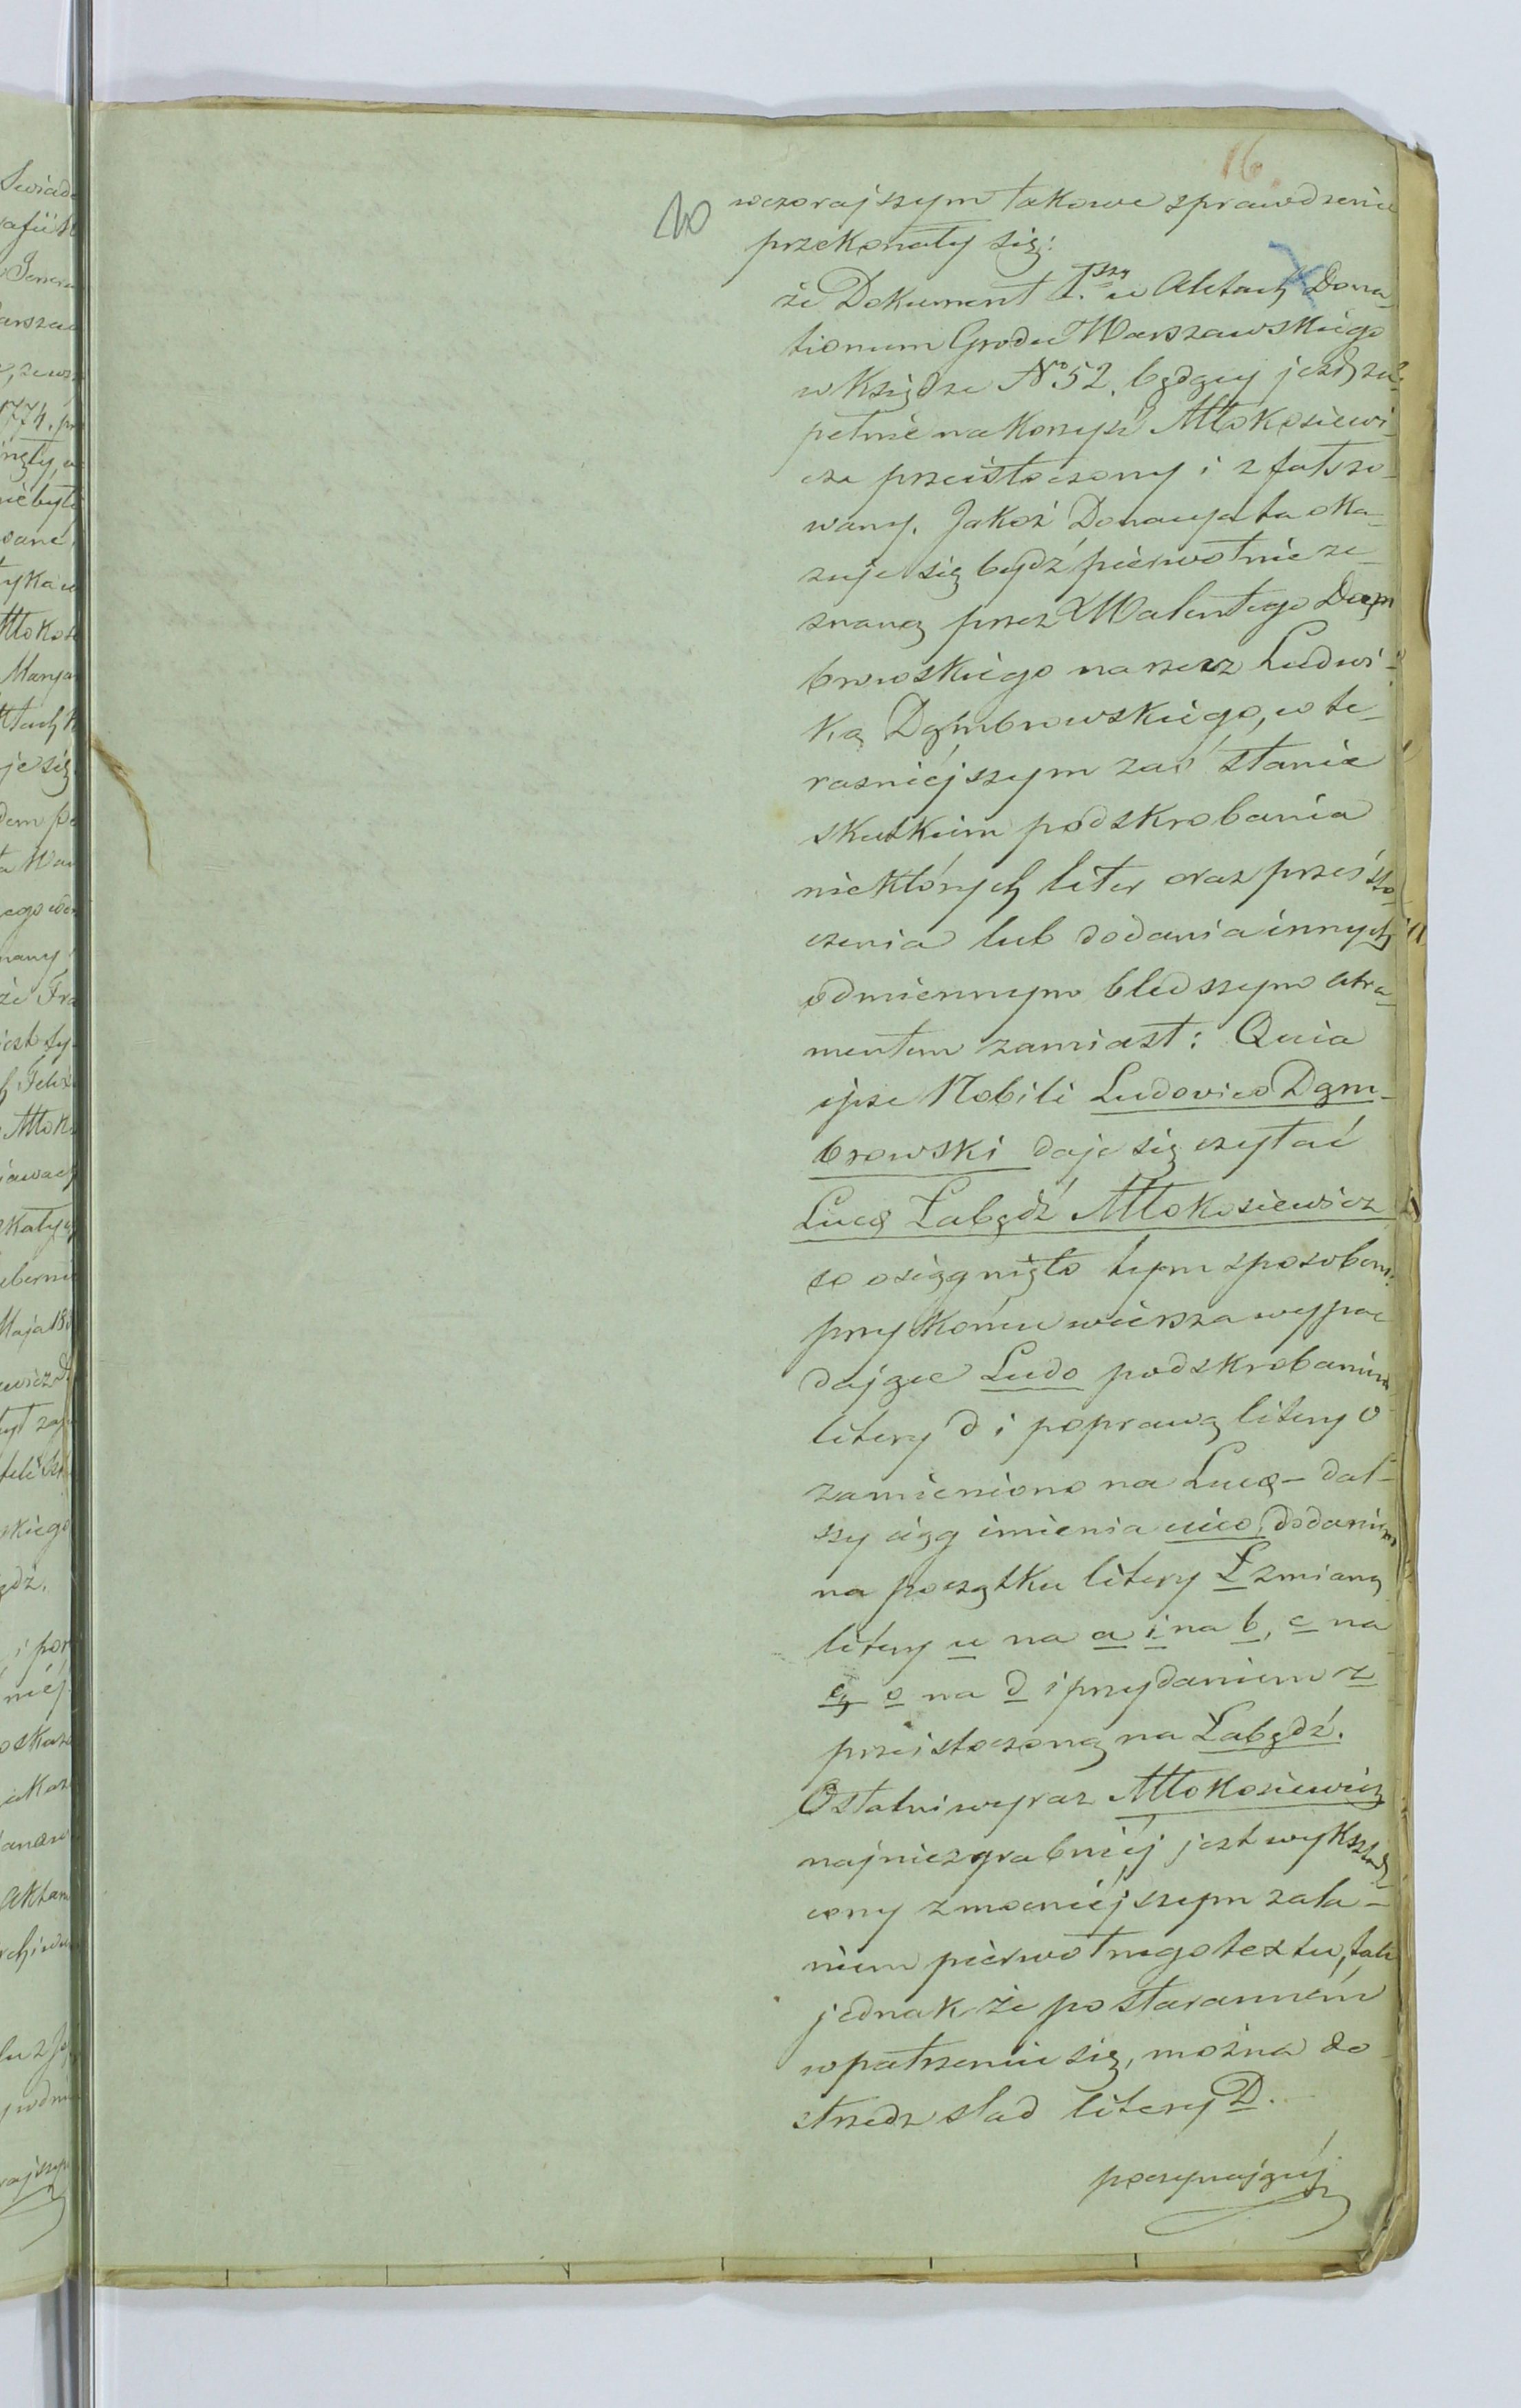 16.
10
wczorajszym takowe sprawdzenie
przekonały się:
że Dokument 1.szy w Aktach Dona-
tionum Grodu Warszawskiego
w Księdze No 52. będący jest zu-
pełnie na korzyść Młokosiewi-
cza przeistoczony i zfałszo-
wany. Jakoż Donacya ta oka-
zuje się bydź pierwotnie ze-
znaną przez Walentego Dąm
browskiego na rzecz Ludwi-
ka Dąmbrowskiego, w te-
raźniejszym zaś stanie
skutkiem podskrobania
niektórych liter oraz przeisto-
czenia lub dodania innych
odmiennym bledszym atra-
mentem zamiast: Quia
ipse Nobili Ludovico Dąm-
browski daje się czytać
Lucę Łabędź Młokosiewicz
co osiągnięto tym sposobem:
przy końcu wiersza wypa-
dające Ludo podskrobaniem
litery d i poprawą litery o
zamieniono na Lucę – dal-
szy ciąg imienia uico, dodaniem
na początku litery Ł zmianą
litery u na a i na b, c na
ę, o na d i przydaniem z
przeistoczoną na Łabędź.
Ostatni wyraz Młokosiewicz
najniezgrabniéj jest wykształ-
cony z mocniéjszym zala-
niem pierwotnego textu, tak
jednak że po starannem
wpatrzeniu się, można do-
strzedz ślad litery D.
poczynającéj